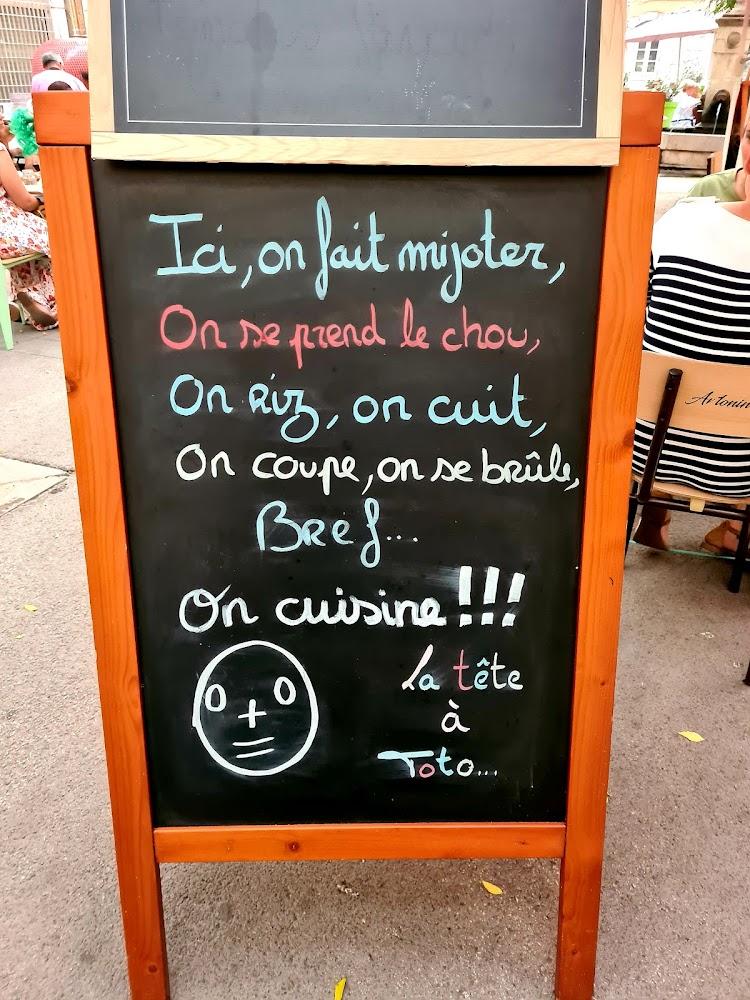 Ici, on fait mijoter,
On se prend le chou,
On riz, on cuit,
On coupe, on se brûle,
Bref...
On cuisine !!!
La tête
à
Toto...
0 + 0
=
Antonin